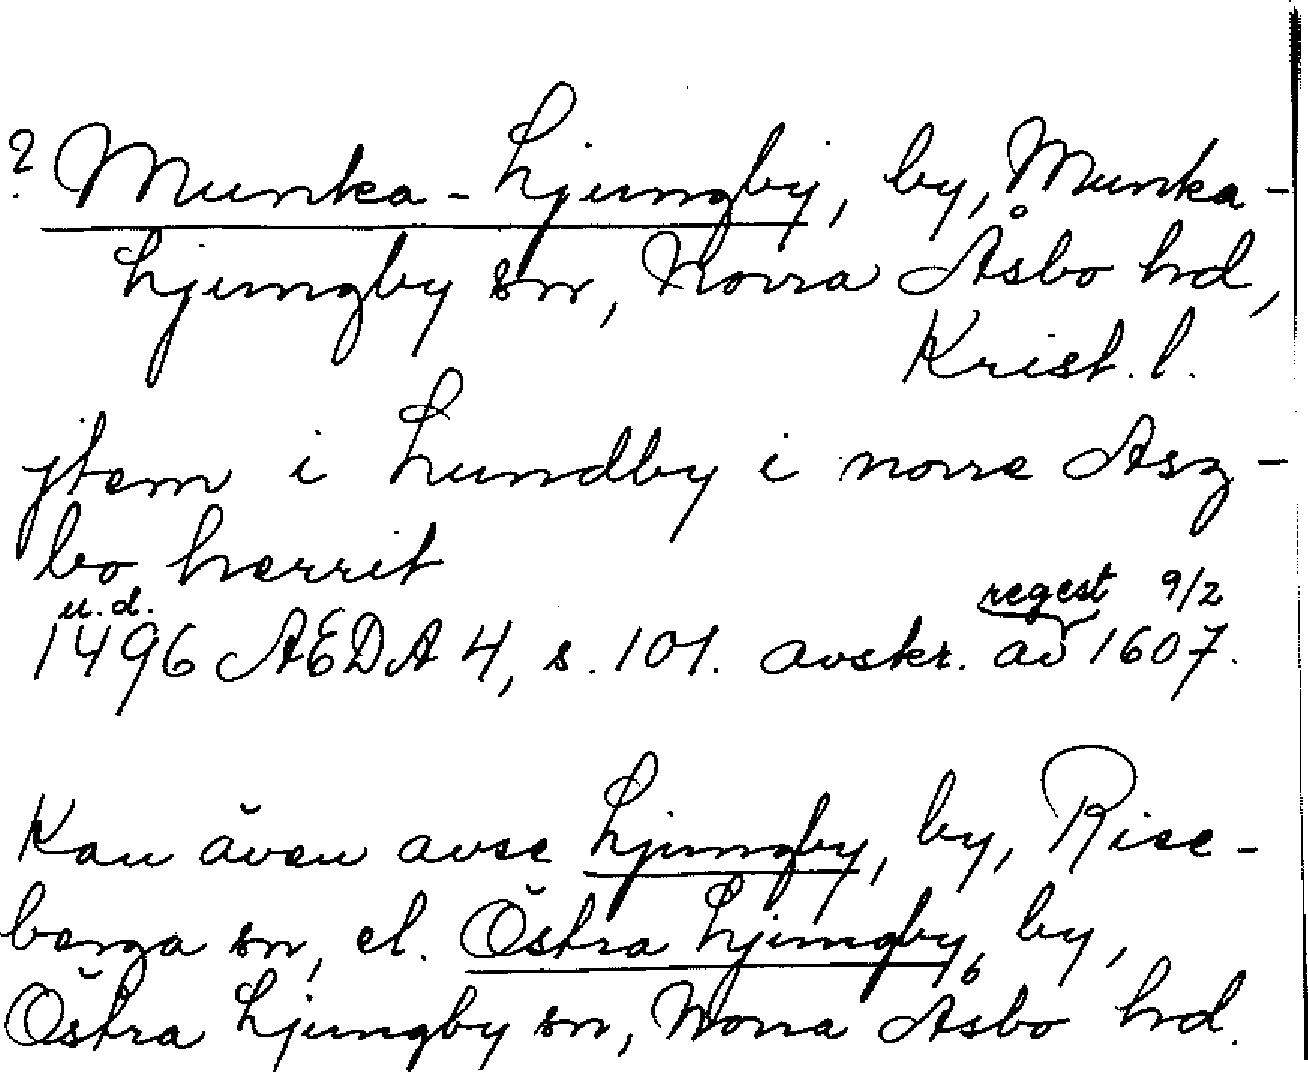 ? Munka-Ljungby, by, Munka-
Ljungby sn, Norra Åsbo hd,
Krist. l.
jtem i Lundby i norre Asz-
bo herrit
u.d. regest 9/2
1496 AEDA 4, s. 101. avskr. av 1607.
Kan även avse Ljungby, by, Rise-
berga sn, el. Östra Ljungby, by,
Östra Ljungby sn, Norra Åsbo hd.